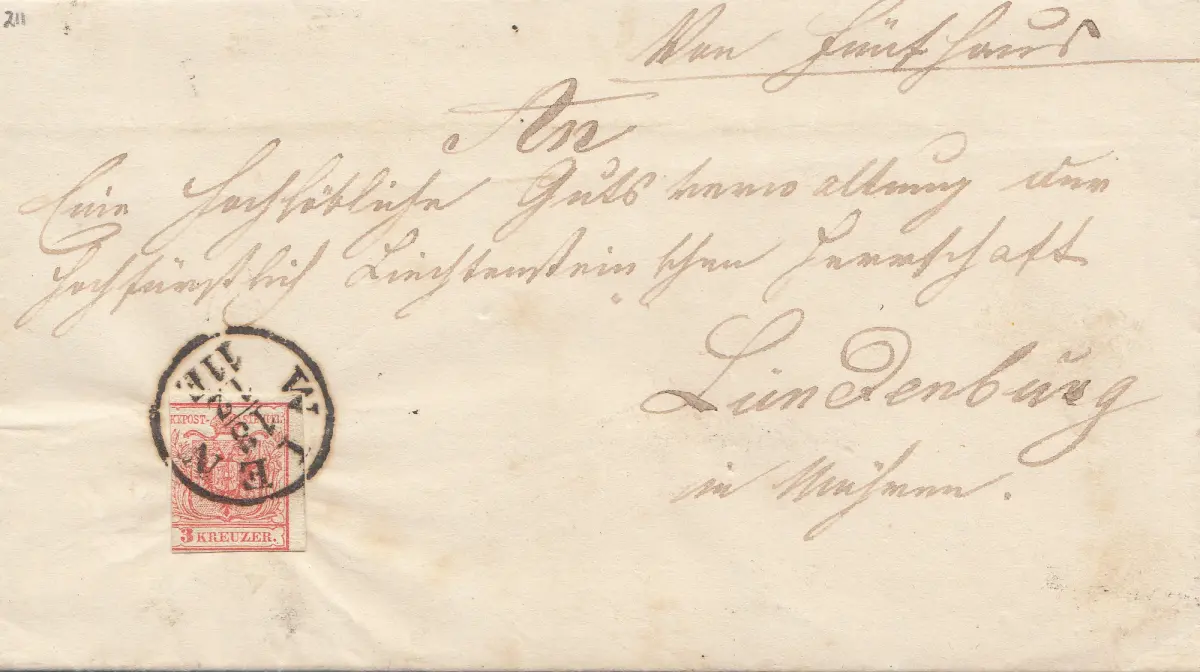 211
Von Fünfhaus
An
Eine Hochlöbliche Gutsverwaltung der
Hochfürstlich Liechtenstein'schen Herrschaft
Lundenburg
in Mähren.
WIEN
KKPOST-STEMPEL
3 KREUZER.